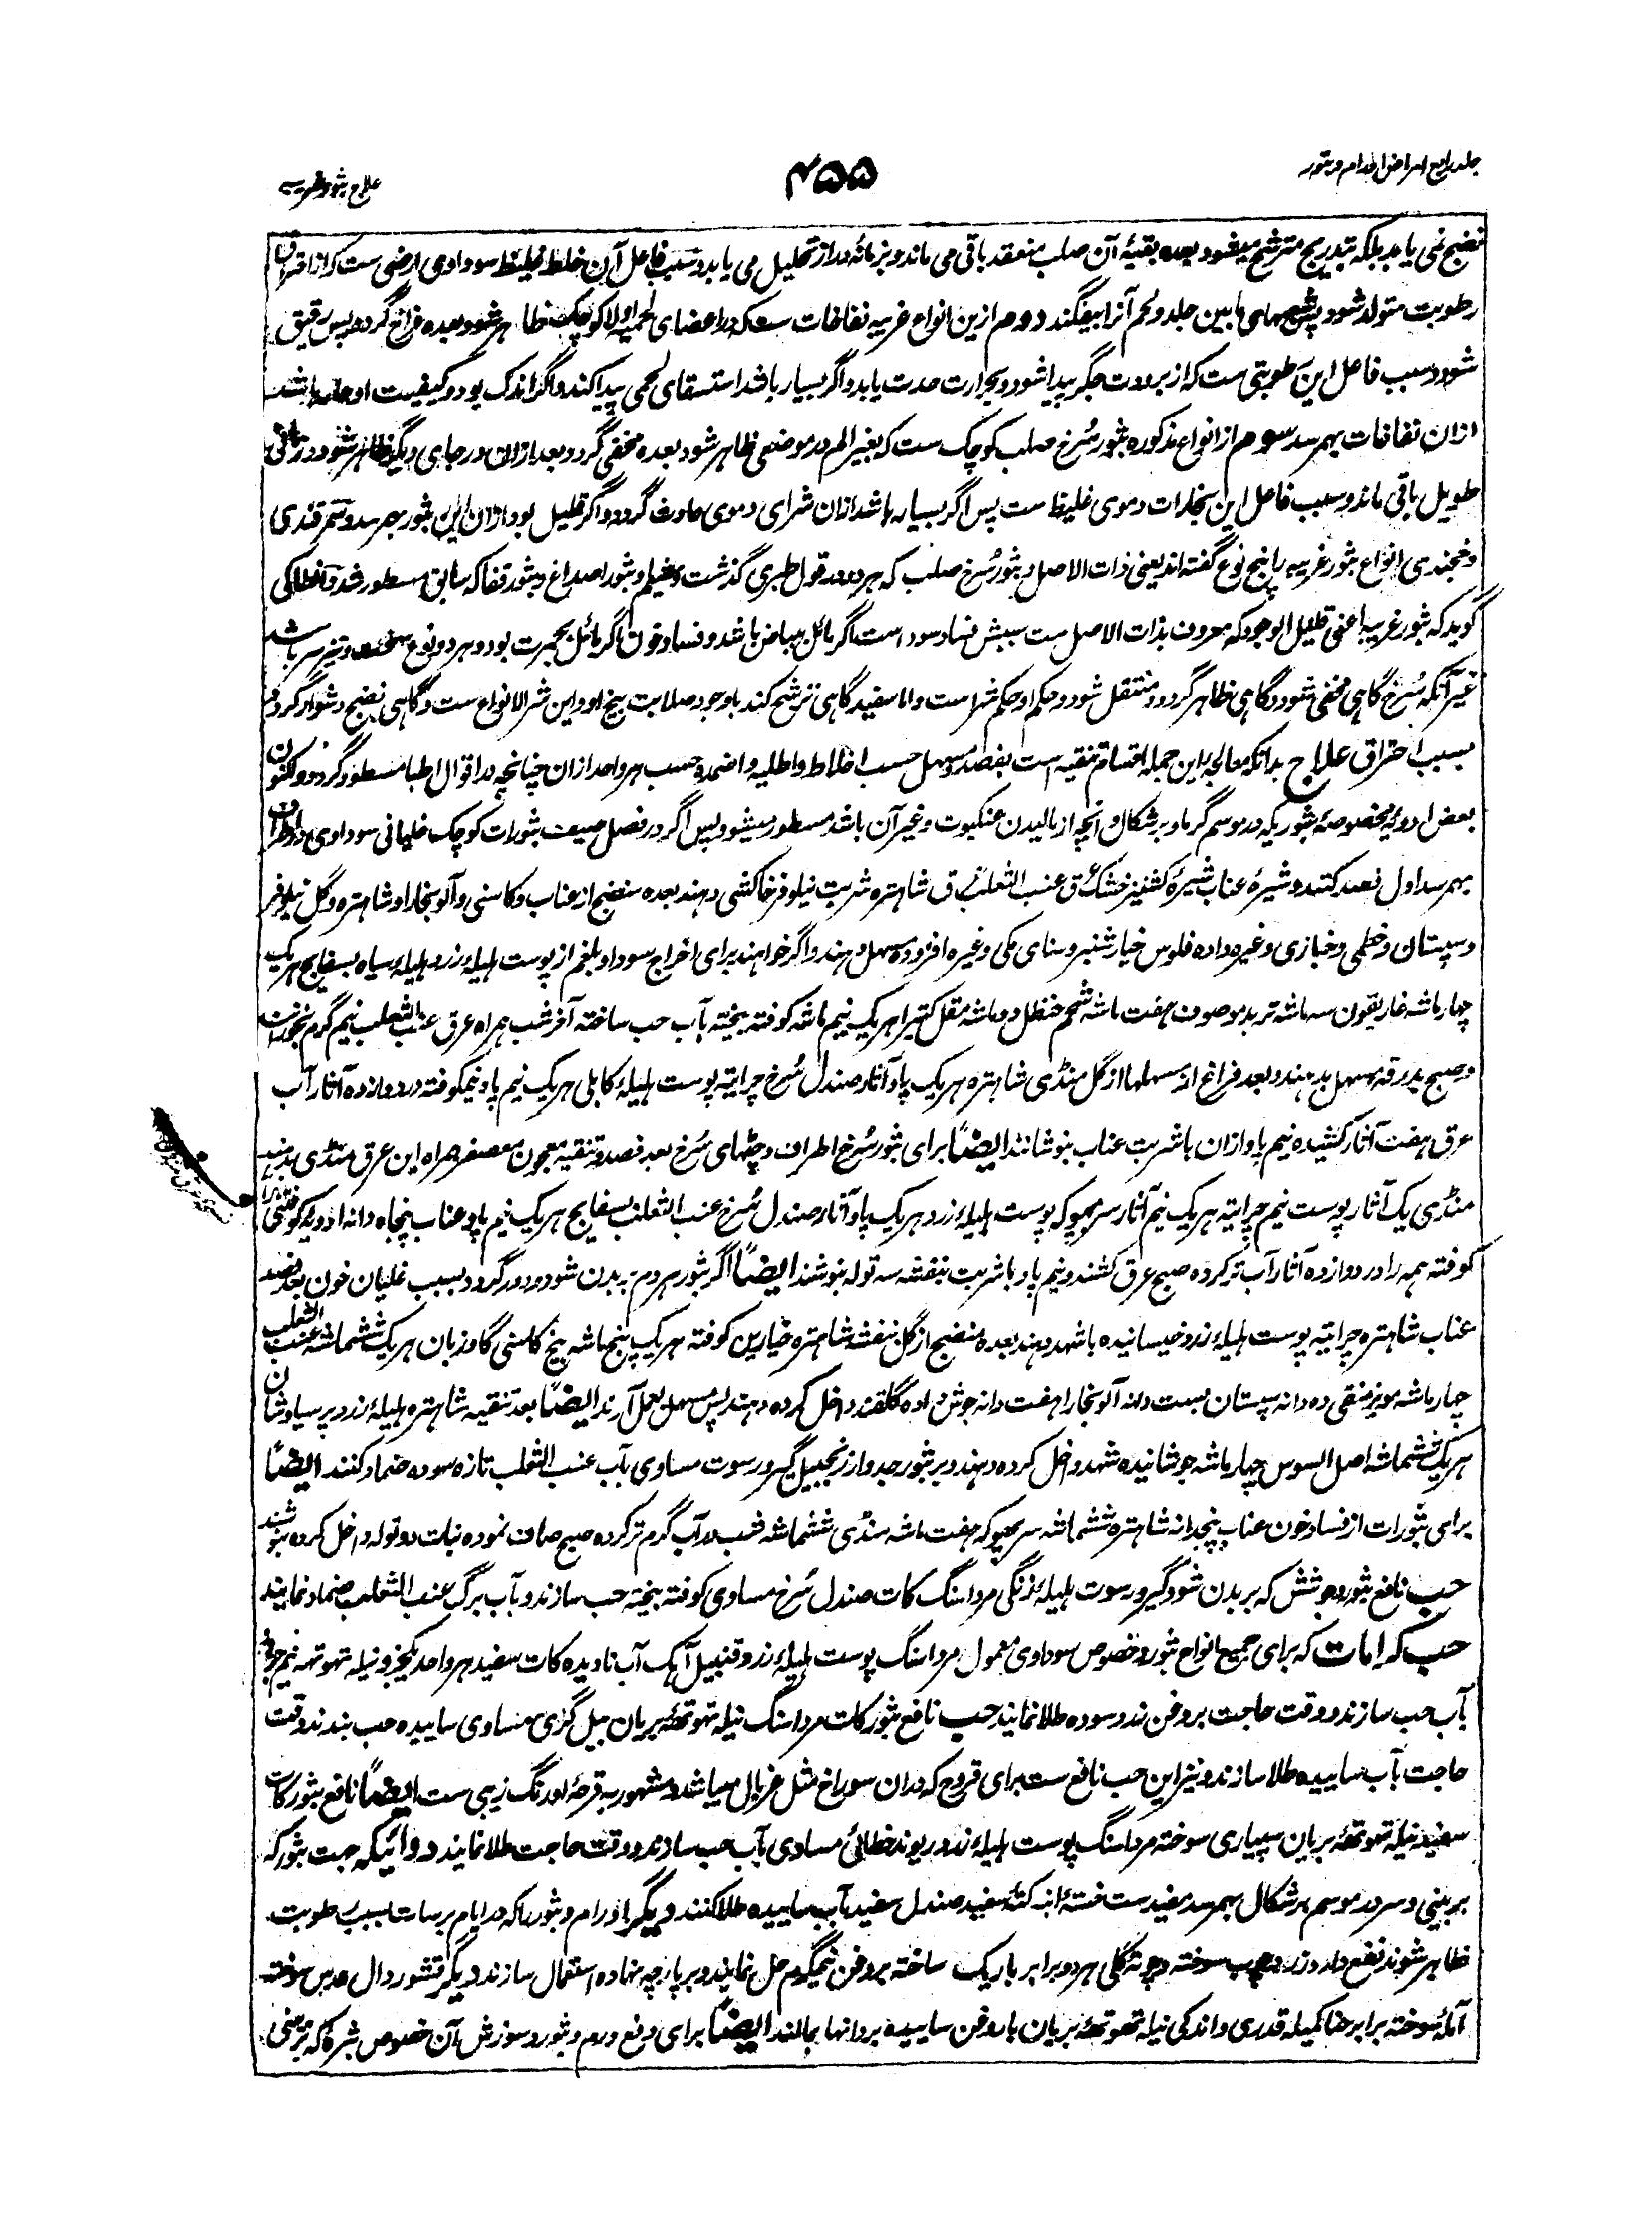 جلد رابع امراض اورام و بثور
۴۵۵
علاج بثور غریبه
نضج نمی یابد بلکه بتدریج مترشح میشود بعده بقیهٔ آن صلب منعقد باقی می ماند و بزمانهٔ دراز تحلیل می یابد و سبب فاعل آن خلط غلیظ سوداوی ارضی ست که از احتراق
رطوبت متولد شود و مابین جلد و لحم آنرا بیفگند دوم ازین انواع غریبه نفاخات ست که در اعضای لحمیه اولا کوچک ظاهر شود بعده فراخ گردد پس رقیق
شود و سبب فاعل این رطوبتی ست که از برودت جگر پیدا شود و بحرارت حدت یابد و اگر بسیار باشد استسقای لحمی پیدا کند و اگر اندک بود و کیفیت او حاد باشد
ازان نفاخات بهمرسد سوم از انواع مذکوره بثور سُرخ صلب کوچک ست که بغیر الم در موضعی ظاهر شود بعده مخفی گردد بعد ازان در جای دیگر ظاهر شود و زمانی
طویل باقی ماند و سبب فاعل این بخارات دموی غلیظ ست پس اگر بسیار باشد ازان شرای دموی حادث گردد و اگر قلیل بود ازان این بثور بهمرسد و سمرقندی
و خجندی انواع بثور غریبه را پنج نوع گفته اند یعنی ذات الاصل و بثور سُرخ صلب که هر دو در قول طبری گذشت و بثور اصداغ و بثور قفا که سابق مسطور شد و انطاکی
گوید که بثور غریبه اعنی قلیل الوجود که معروف بذات الاصل ست سببش فساد سودا ست اگر مائل ببیاض باشد و فساد خون اگر مائل بحمرت بود و هر دو نوع سخت و تیز سر باشد
غیر آنکه سُرخ گاهی مخفی شود و گاهی ظاهر گردد و منتقل شود و حکم او حکم شرا ست و اما سفید گاهی ترشح کند باوجود صلابت بیخ او و این شر الانواع ست و گاهی نضج دشوار گردد
بسبب احتراق علاج بدانکه معالجهٔ این جمله اقسام تنقیه است بفصد و مسهل حسب اخلاط و اطلیه و اضمده حسب هر واحد ازان چنانچه در اقوال اطبا مسطور گردد و اکنون
بعض ادویهٔ مخصوصهٔ بثوریکه در موسم گرما و برشکال و آنچه از بالیدن عنکبوت و غیر آن باشد مسطور میشود پس اگر در فصل صیف بثورات کوچک غلیانی سوداوی در اطراف
بهمرسد اول فصد کنند و شیرهٔ عناب شیرهٔ کشنیز خشک عرق عنب الثعلب عرق شاهتره شربت نیلوفر خاکشی دهند بعده منضج از عناب و کاسنی و آلوبخارا و شاهتره و گل نیلوفر
و سپستان و خطمی و خبازی و غیره داده فلوس خیارشنبر و سنای مکی و غیره افزوده مسهل دهند و اگر خواهند برای اخراج سودا و بلغم از پوست هلیلهٔ زرد هلیلهٔ سیاه بسفایج هریک
چهار ماشه غاریقون سه ماشه تربد موصوف هفت ماشه شحم حنظل دو ماشه مقل کتیرا هریک نیم ماشه کوفته بیخته بآب حب ساخته آخر شب همراه عرق عنب الثعلب نیم گرم بخورانند
و صبح بدرقه مسهل بدهند و بعد فراغ از مسهلها از گل منڈی شاهتره هریک پاو آثار صندل سُرخ چرایته پوست هلیلهٔ کابلی هریک نیم پاو نیمکوفته در دوازده آثار آب
عرق هفت آثار کشیده نیم پاو ازان باشربت عناب بنوشانند ایضاً برای بثور سُرخ اطراف و چٹهای سُرخ بعد فصد و تنقیه معجون معصفر همراه این عرق منڈی بدهند
منڈی یک آثار پوست نیم چرایته هریک نیم آثار سرپهوکه پوست هلیلهٔ زرد هریک پاو آثار صندل سُرخ عنب الثعلب بسفایج هریک نیم پاو عناب پنجاه دانه ادویه کوفتنی را
کوفته همه را در دوازده آثار آب تر کرده صبح عرق کشند و نیم پاو باشربت بنفشه سه توله بنوشند ایضاً اگر بثور هر دم به بدن شود و دور گردد بسبب غلیان خون بعد فصد
عناب شاهتره چرایته پوست هلیلهٔ زرد خیسانیده باشهد دهند بعده منضج از گل بنفشه شاهتره خیارین کوفته هریک پنج ماشه بیخ کاسنی گاوزبان هریک ششماشه عنب الثعلب
چهار ماشه مویز منقی ده دانه سپستان بست دانه آلوبخارا هفت دانه جوش داده گلقند داخل کرده دهند پس مسهل بعمل آرند ایضاً بعد تنقیه شاهتره هلیلهٔ زرد پرسیاوشان
هریک ششماشه اصل السوس چهار ماشه جوشانیده شهد داخل کرده دهند و بر بثور جدوار زنجبیل گیرو رسوت مساوی بآب عنب الثعلب تازه سوده ضماد کنند ایضاً
برای بثورات از فساد خون عناب پنجدانه شاهتره ششماشه سرپهوکه هفت ماشه منڈی ششماشه شب در آب گرم تر کرده صبح صاف نموده نبات دو توله داخل کرده بنوشند
حب نافع بثور و جوشش که بر بدن شود گیرو رسوت هلیلهٔ زنگی مرداسنگ کات صندل سُرخ مساوی کوفته بیخته حب سازند و بآب برگ عنب الثعلب ضماد نمایند
حب کرامات که برای جمیع انواع بثور و خصوص سوداوی معمول مرداسنگ پوست هلیلهٔ زرد قنبیل آهک آب نادیده کات سفید هر واحد یکجزو نیله تهوتهه نیم جزو
بآب حب سازند و وقت حاجت بروغن سوده طلا نمایند حب نافع بثور کات مرداسنگ نیله تهوتهه بریان بیل گری مساوی ساییده حب بندند وقت
حاجت بآب ساییده طلا سازند و نیز این حب نافع ست برای قروح که دران سوراخ مثل غربال میباشد و مشهور به قرحهٔ اورنگ زیبی ست ایضاً نافع بثور کات
سفید نیله تهوتهه بریان سپیاری سوخته مرداسنگ پوست هلیلهٔ زرد ریوند خطائی مساوی بآب حب سازند و وقت حاجت طلا نمایند دوائیکه جهت بثور که
بر بینی و سر در موسم برشکال بهمرسد مفید ست خستهٔ انبه کتهٔ سفید صندل سفید بآب ساییده طلا کنند دیگر اورام و بثور را که در ایام برسات بسبب رطوبت
ظاهر شوند نفع دارد زرد چوب سوخته و چونهٔ گلی هر دو برابر باریک ساخته بروغن نیمگرم حل نمایند و بر پارچه نهاده استعمال سازند دیگر قشور دال عدس سوخته
آملهٔ سوخته برابر حنا کمیله قدری و اندکی نیله تهوتههٔ بریان باروغن ساییده بر دانها بمالند ایضاً برای دفع ورم و بثور و سوزش آن خصوص بشره که بر بینی